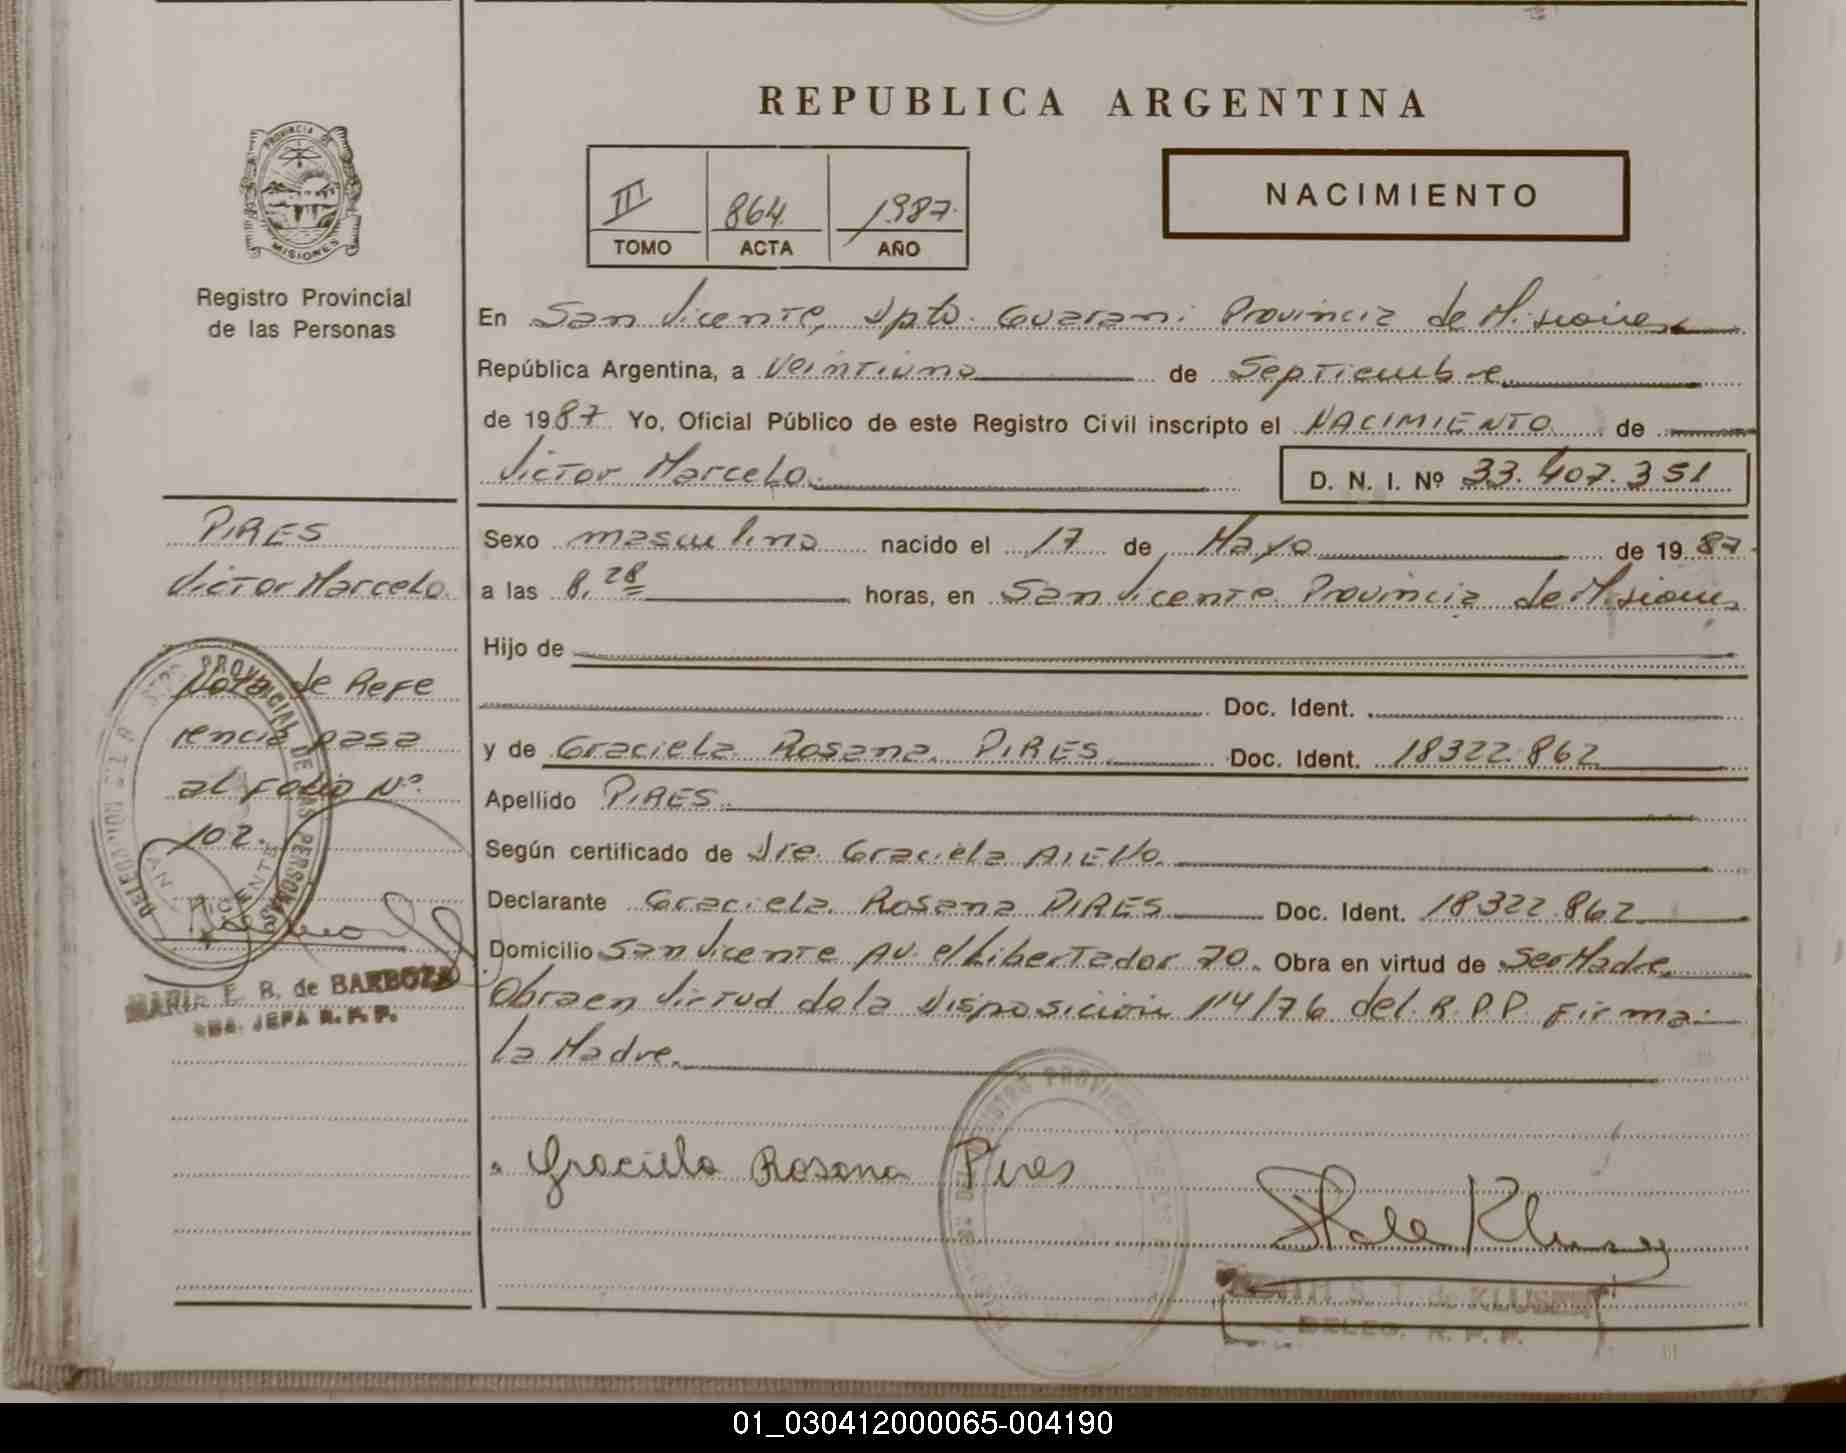 REPUBLICA ARGENTINA
PROVINCIA DE
MISIONES
Registro Provincial
de las Personas
III 864 1987.
TOMO ACTA AÑO
NACIMIENTO
En San Vicente, Dpto. Guarani Provincia de Misiones
República Argentina, a Veintiuno de Septiembre
de 1987 Yo, Oficial Público de este Registro Civil inscripto el NACIMIENTO de
Victor Marcelo. D. N. I. Nº 33.407.351
PIRES
Victor Marcelo.
Sexo masculino nacido el 17 de Mayo de 1987
a las 8,28 horas, en San Vicente Provincia de Misiones
Hijo de
Doc. Ident.
y de Graciela Rosana PIRES Doc. Ident. 18322.862
Apellido PIRES.
Según certificado de Dre. Graciela AIELLO.
Declarante Graciela Rosana PIRES Doc. Ident. 18322.862
Domicilio San Vicente AV. el Libertador 70. Obra en virtud de Ser Madre
Obra en Virtud de la Disposicion 114/76 del R.P.P. Firma
la Madre.
Nota de Refe
rencia pasa
al Folio Nº
102.
MARIA E. B. de BARBOZA
JEFA R. P. P.
Graciela Rosana Pires
S. T. de KLUSENER
DELEG. R. P. P.
01_030412000065-004190